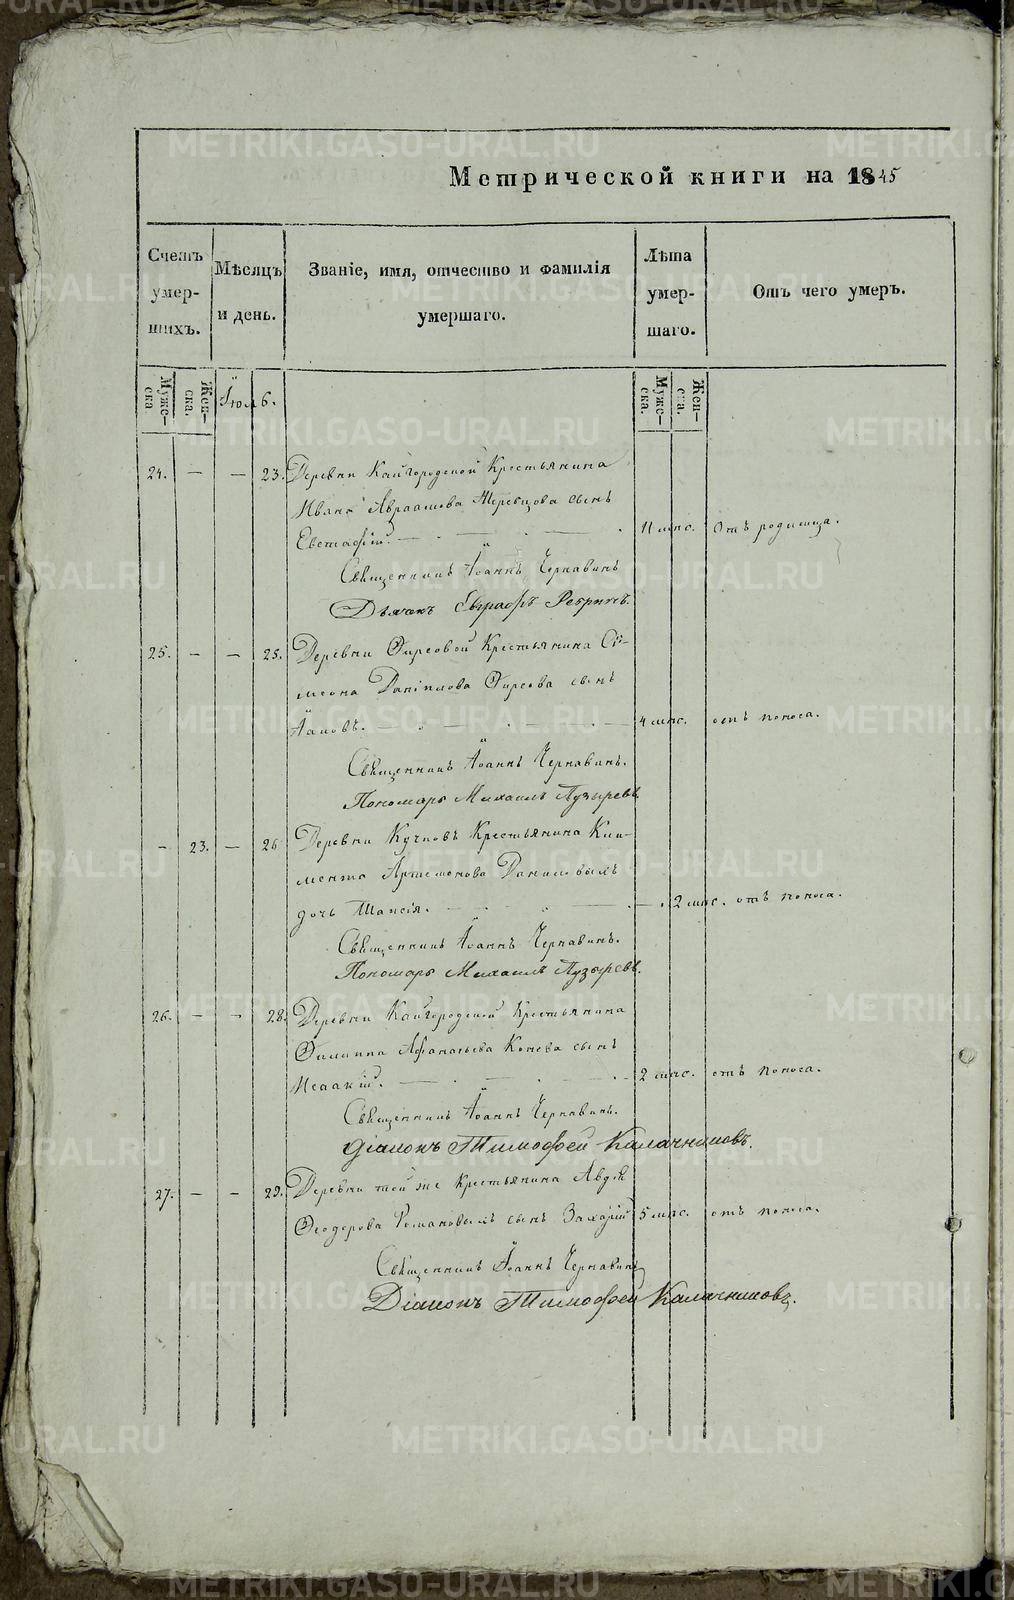 Метрической книги на 1845
Счетъ умер- шихъ.
Мѣсяцъ и день.
Званіе, имя, отчество и фамилія умершаго.
Лѣта умер- шаго.
Отъ чего умеръ.
Муже- ска
Жен- ска.
Іюль.
Муже- ска.
Жен- ска.
24. — — 23. Деревни Кайгородской Крестьянина
Ивана Авраамова Жеребцова сынъ
Евстафій. 11 мѣс. Отъ родимца.
Священникъ Іоаннъ Чернавинъ
Дьячекъ Евграфъ Ребринъ.
25. — — 25. Деревни Фирсовой Крестьянина Си-
меона Даніилова Фирсова сынъ
Іаковъ. 4 мѣс. отъ поноса.
Священникъ Іоаннъ Чернавинъ.
Пономарь Михаилъ Пузыревъ
— 23. — 26 Деревни Кучковъ Крестьянина Кли-
мента Артемонова Даниловыхъ
дочь Таисія. — 2 мѣс. отъ поноса.
Священникъ Іоаннъ Чернавинъ.
Пономарь Михаилъ Пузыревъ.
26. — — 28. Деревни Кайгородской Крестьянина
Филиппа Афанасьева Конева сынъ
Исаакій. 2 мѣс. отъ поноса.
Священникъ Іоаннъ Чернавинъ.
Діаконъ Тимофей Калачниковъ.
27. — — 29. Деревни той же Крестьянина Авдія
Феодорова Романовыхъ сынъ Захарій 5 мѣс. отъ поноса.
Священникъ Іоаннъ Чернавинъ
Діаконъ Тимофей Калачниковъ.
METRIKI.GASO-URAL.RU